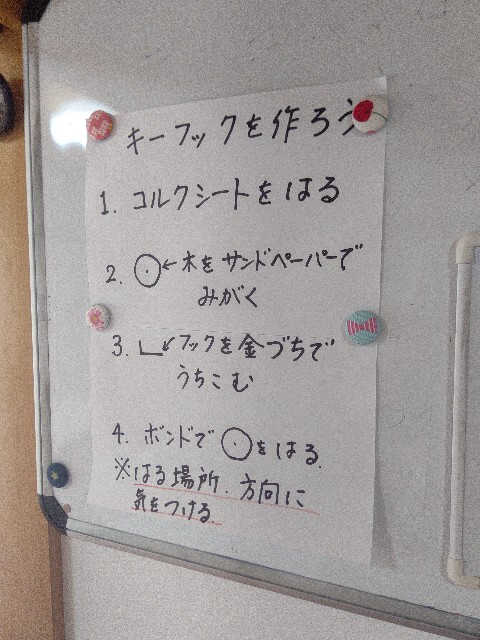 キーフックを作ろう
1. コルクシートをはる
2. ←木をサンドペーパーで
みがく
3. ↙フックを金づちで
うちこむ
4. ボンドで ◯をはる.
※はる場所.方向に
気をつける.